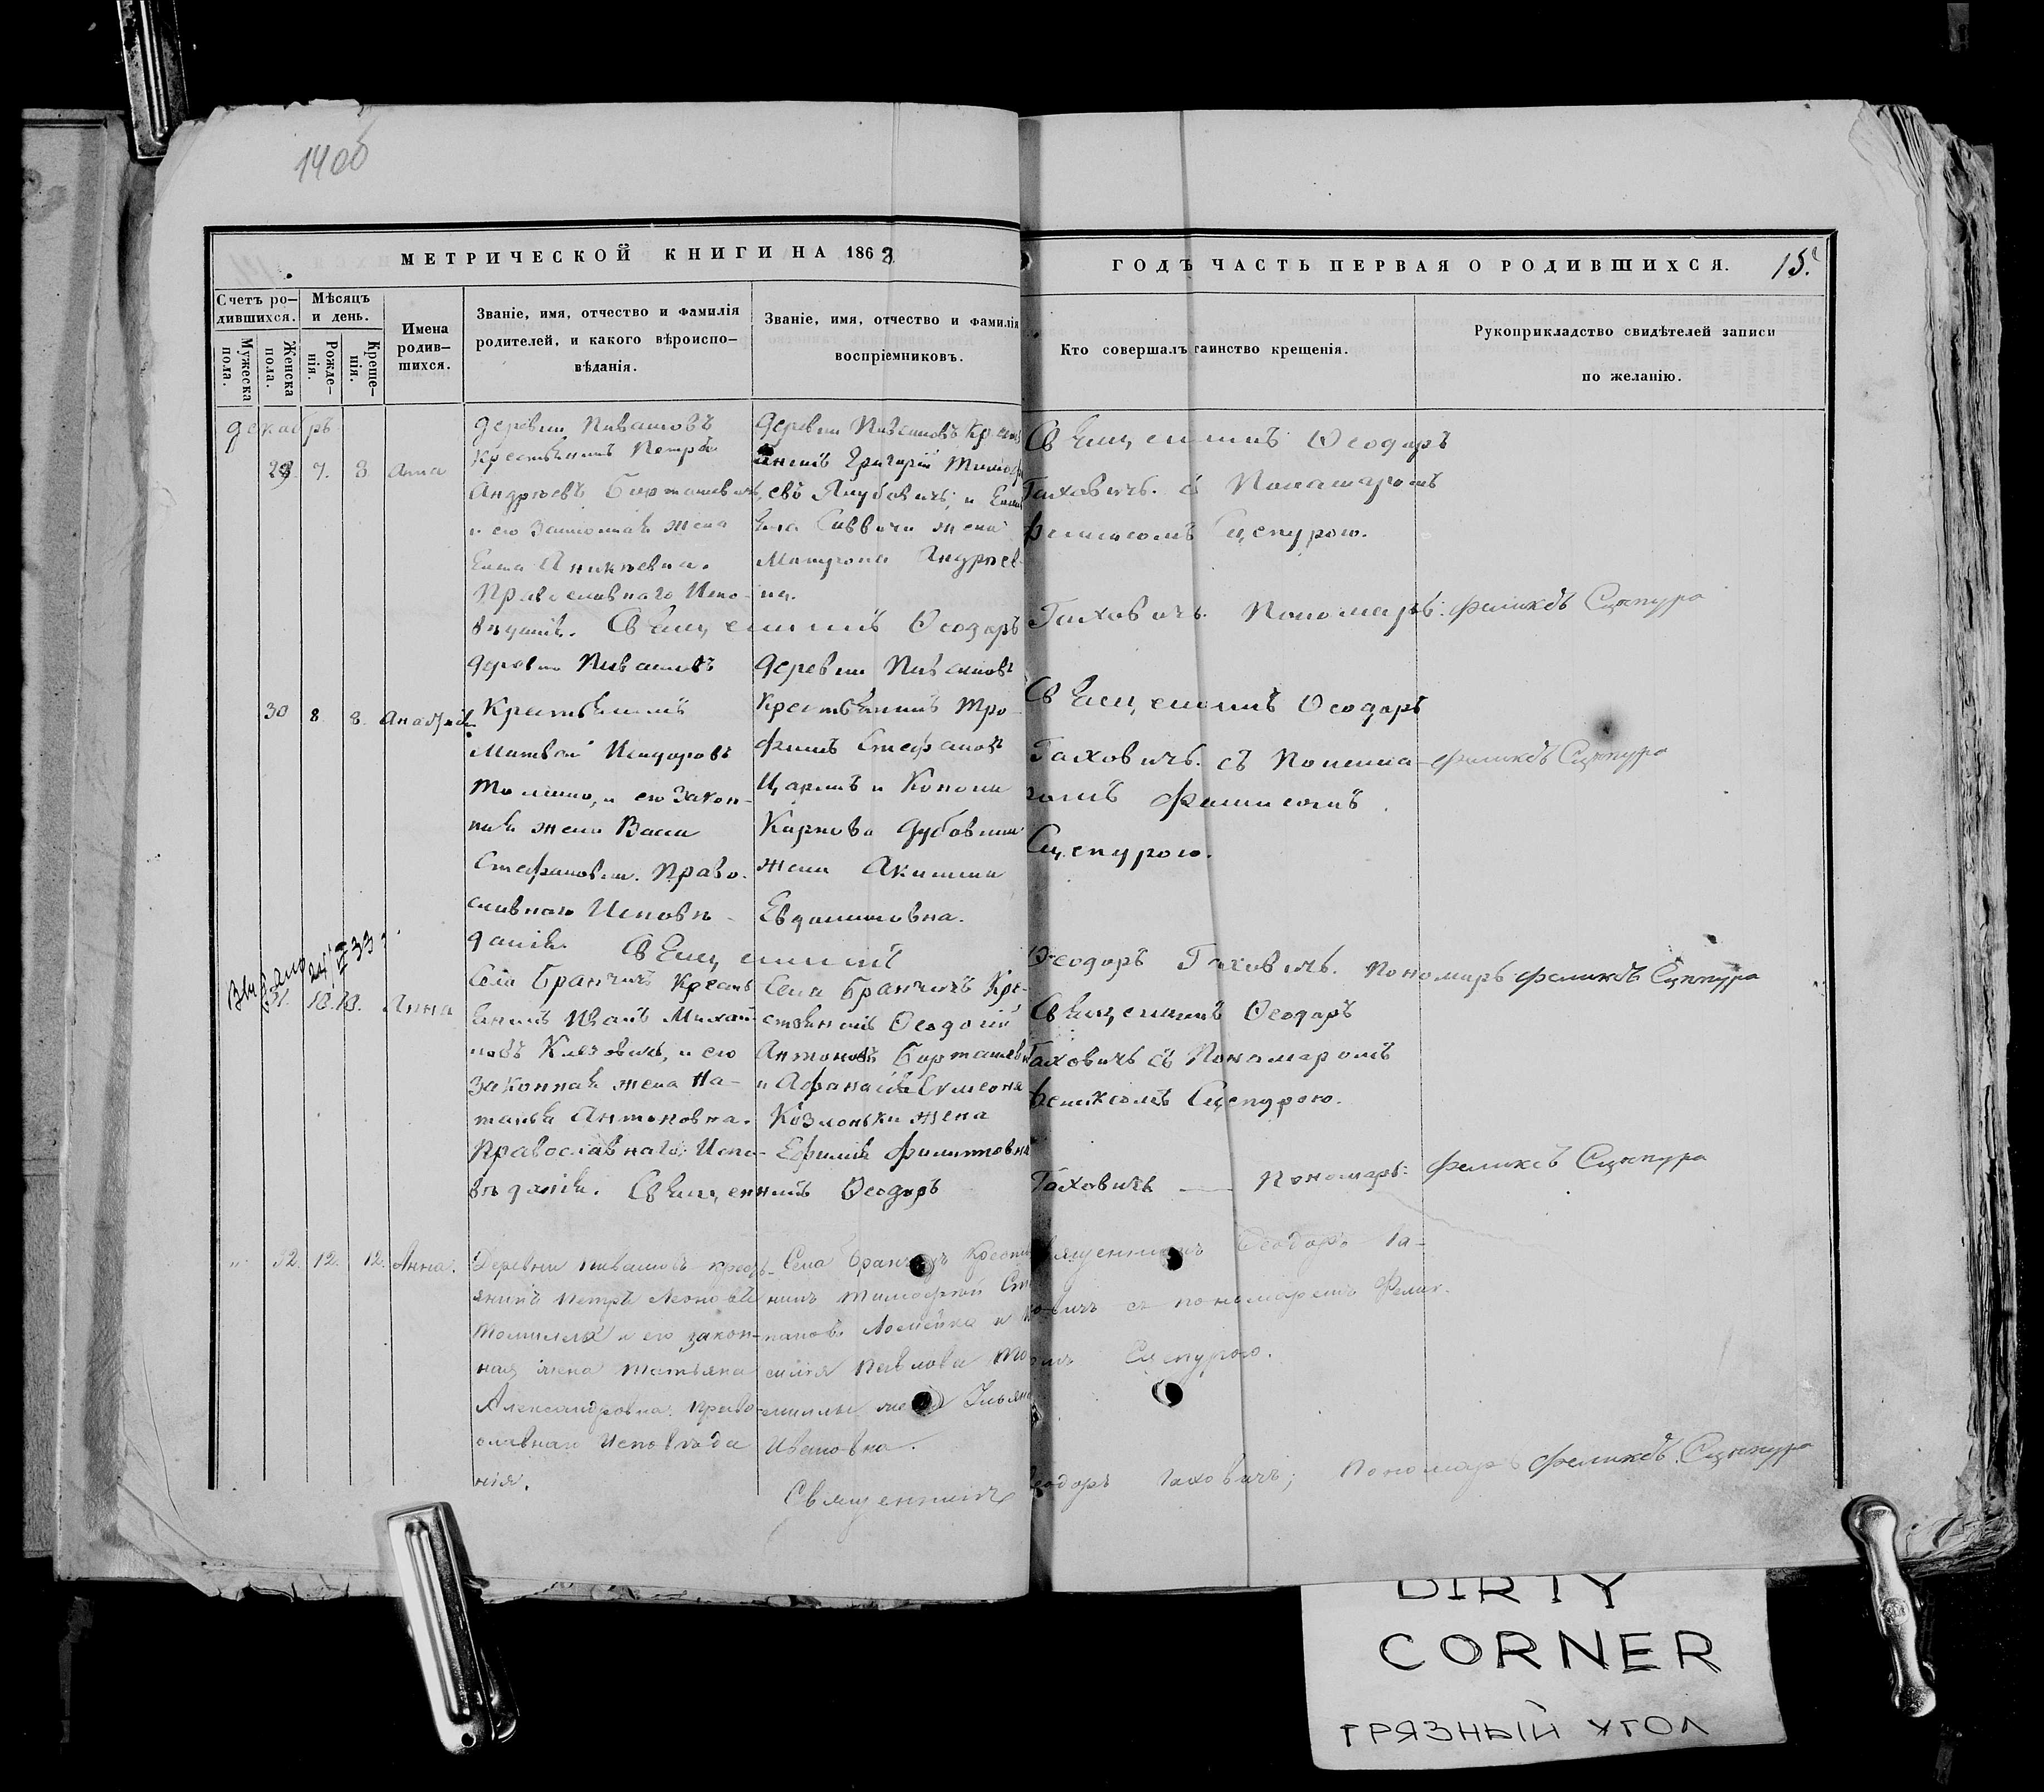 140об
МЕТРИЧЕСКОЙ КНИГИ НА 1863
ГОДЪ ЧАСТЬ ПЕРВАЯ О РОДИВШИХСЯ. 15.
Счетъ ро-
дившихся.
Мужеска
пола.
Женска
пола.
Мѣсяцъ
и день.
Рожде-
нія.
Креще-
нія.
Имена
родив-
шихся.
Званіе, имя, отчество и фамилія
родителей, и какого вѣроиспо-
вѣданія.
Званіе, имя, отчество и фамилія
воспріемниковъ.
Кто совершалъ таинство крещенія.
Рукоприкладство свидѣтелей записи
по желанію.
Декабрь
29. 7. 8. Анна
деревни Пивашовъ
Крестьянинъ Петръ
Андреевъ
и его Законная жена
Елена
Православнаго Испо-
вѣданія. Священникъ Ѳеодоръ
Деревни Пивашовъ Крестья
нинъ Григорій Тимоѳе
евъ Якубовичъ, и
Саввича жена
Матрона Андреев-
на.
Священникъ Ѳеодоръ
Гаховичъ. съ Пономаремъ
Феликсомъ Сцепурою.
Гаховичъ. Пономарь: Феликсъ Сцепура
30 8 8.
Деревни Пивашовъ
Крестьянинъ
Матвей
и его Закон-
ная жена
Стефановна. Право-
славнаго Исповѣ-
данія. Священникъ
Деревни Пивашовъ
Крестьянинъ Тро-
фимъ Стефановъ
и Конона
Карпова
жена Акилина
Евдокимовна.
Священникъ Ѳеодоръ
Гаховичъ. съ Понома-
ромъ Феликсомъ
Сцепурою.
Феликсъ Сцепура
Ѳеодоръ Гаховичъ. Пономарь Феликсъ Сцепура
Выдано
31. 10. 13. Анна
Села Бранчичъ Кресть
янинъ Иванъ Михай-
ловъ и его
Законная жена На-
талья Антоновна.
Православнаго Испо-
вѣданія. Священникъ Ѳеодоръ
Села Бранчичъ Кре-
стьянинъ Ѳеодосій
Антоновъ
и Афанасія Симеона
Козлоньки жена
Ефимія Филипповна
Священникъ Ѳеодоръ
Гаховичъ съ Пономаромъ
Феликсомъ Сцепурою.
Гаховичъ — Пономарь: Феликсъ Сцепура
" 32. 12. 12. Анна.
Деревни Пивашовъ крестъ-
янинъ Петръ Леоновъ
Томилла и его закон-
ная жена Татьяна
Александровна. Право-
славнаго Исповѣда
нія.
Села Бранчичъ Крестья
нинъ Тимофей Сте
пановъ и
Павлова То
миллы жена Ульяна
Ивановна.
Священникъ Ѳеодоръ Га-
ховичъ съ пономаремъ Фелик-
сомъ Сцепурою.
Священникъ Ѳеодоръ Гаховичъ; Пономарь Феликсъ Сцепура
DIRTY
CORNER
ГРЯЗНЫЙ УГОЛ